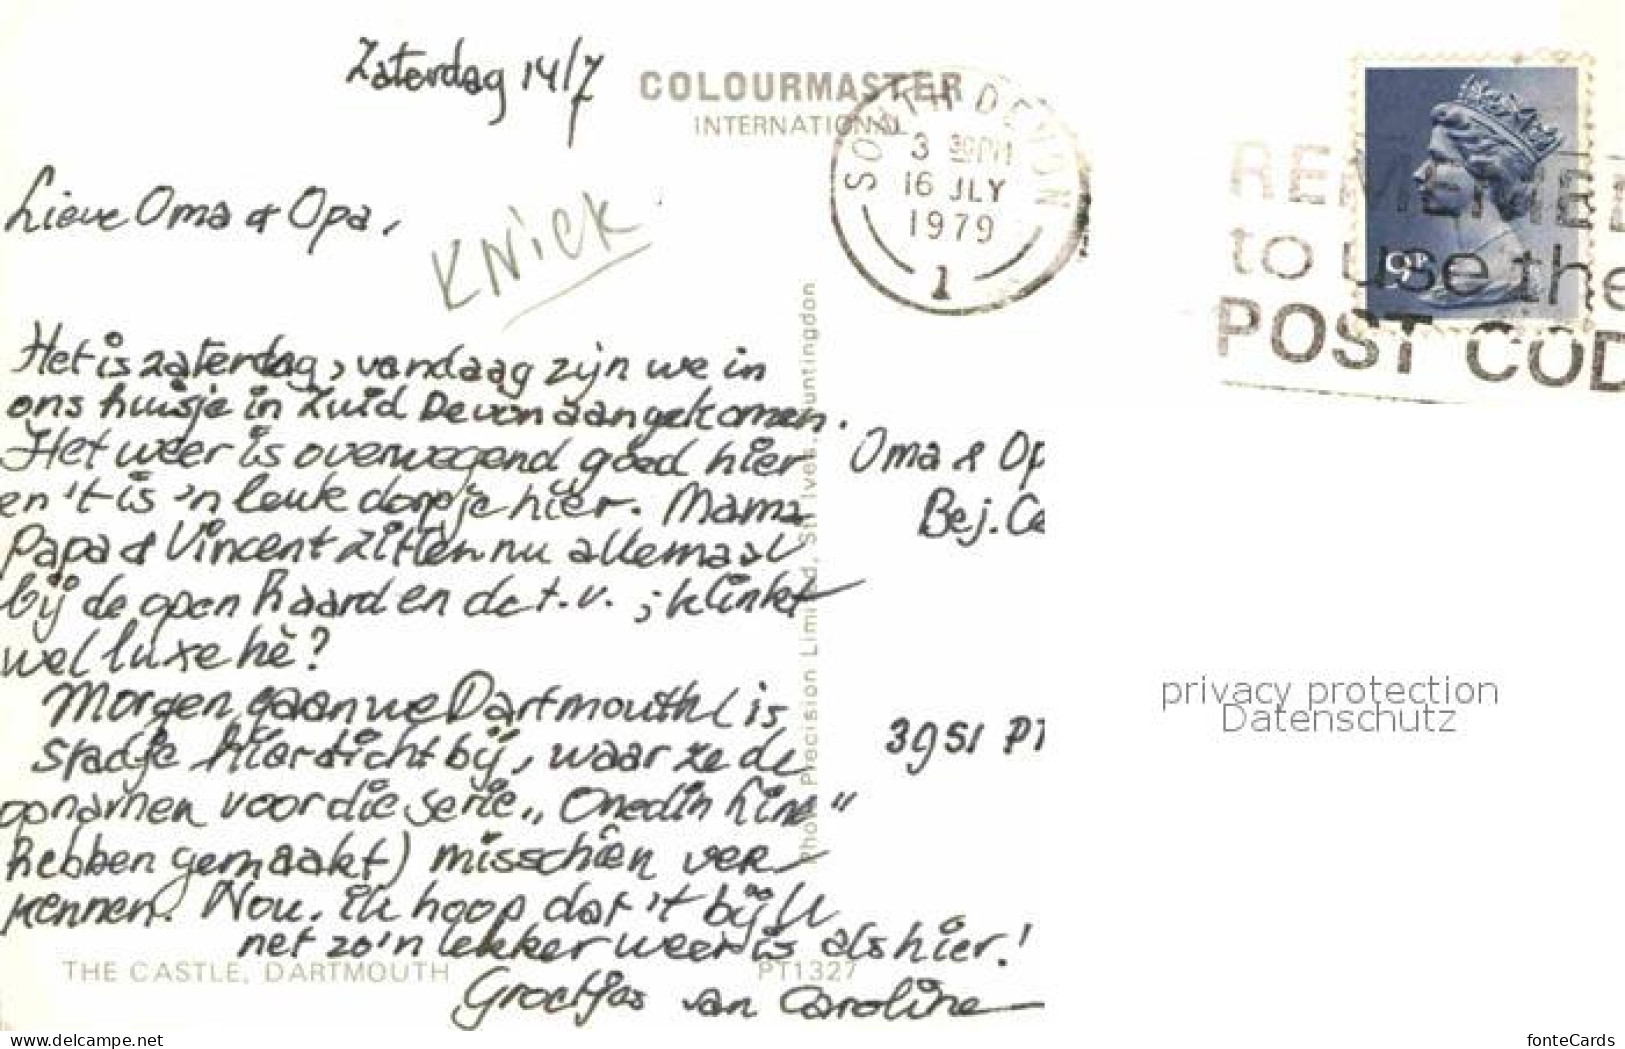 Zaterdag 14/7
COLOURMASTER
INTERNATIONAL
SOUTH DEVON
3 30PM
16 JLY
1979
1
REMEMBE
to use the
POST COD
9P
Lieve Oma & Opa,
KNiCK
Het is zaterdag, vandaag zijn we in
ons huisje in Zuid Devon aangekomen.
Het weer is overwegend goed hier
en 't is 'n leuk dorpje hier. Mama
Papa & Vincent zitten nu allemaal
bij de open haard en de t.v. ; klinkt
wel luxe hè?
Morgen gaan we Dartmouth (is
stadje hier dicht bij, waar ze de
opnamen voor die serie „Onedin Line"
hebben gemaakt) misschien ver
kennen. Nou. ik hoop dat 't bij U
net zo'n lekker weer is als hier!
Groetjes van Caroline
Oma & Op
Bej. Ce
3951 PT
Photo Precision Limited, St. Ives, Huntingdon
THE CASTLE, DARTMOUTH
PT1327
privacy protection
Datenschutz
www.delcampe.net
fonteCards